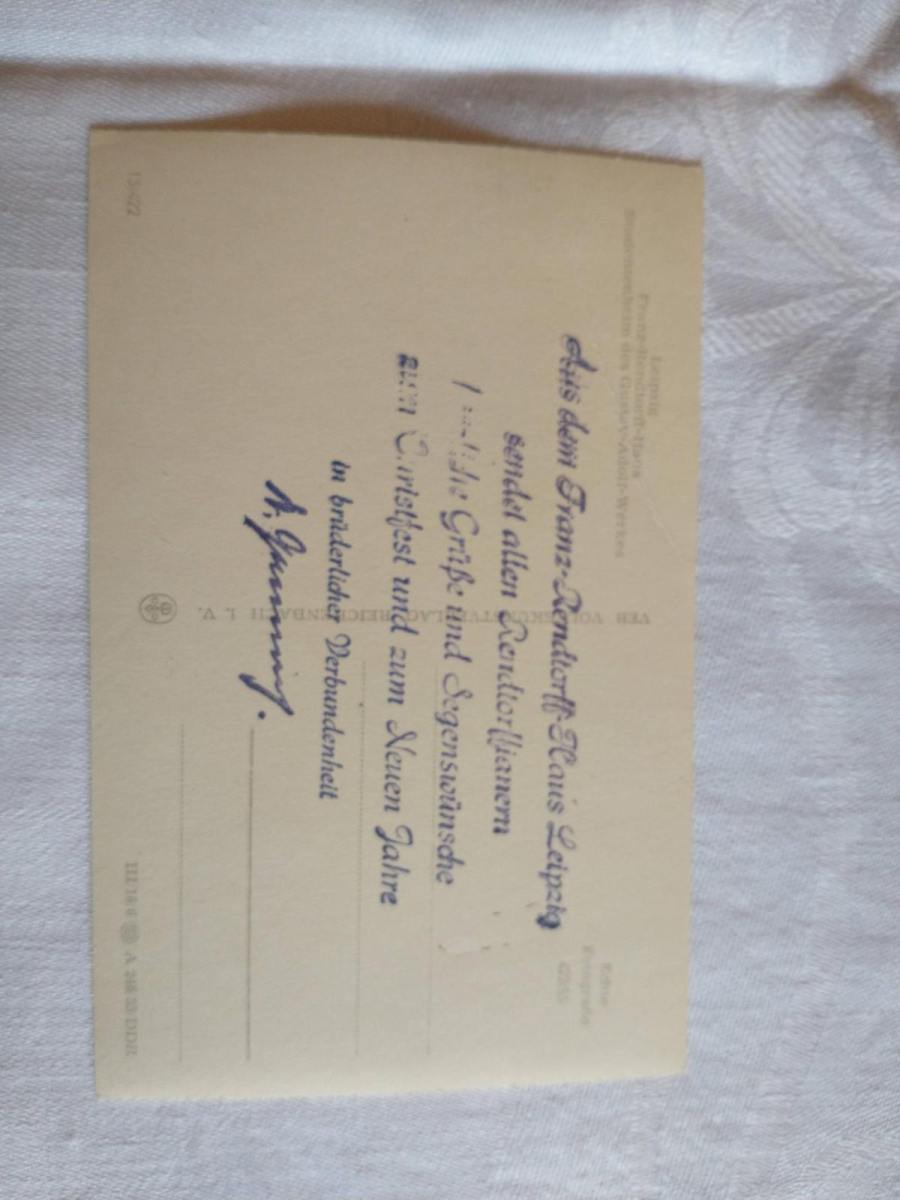 Leipzig
Franz-Rendtorff-Haus
des Gustav-Adolf-Werkes
Aus dem Franz-Rendtorff-Haus Leipzig
sendet allen Rendtorffianern
Grüße und Segenswünsche
zum Christfest und zum Neuen Jahre
in brüderlicher Verbundenheit
VEB VOLKSKUNSTVERLAG REICHENBACH I. V.
Echte
Fotografie
III 18 6 A 268 55 DDR